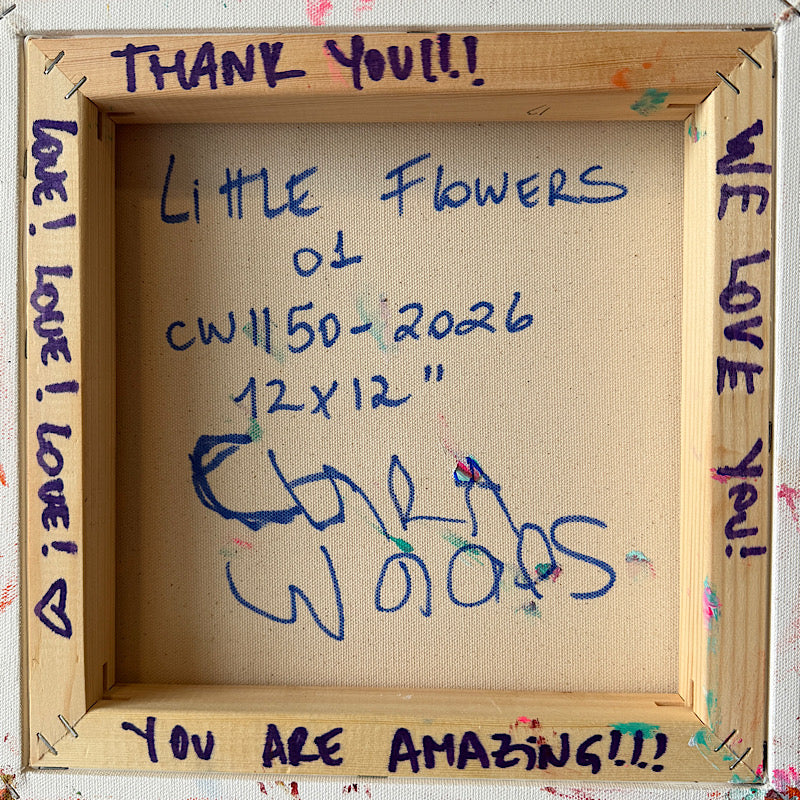 THANK YOU!!!!
LOVE! LOVE! LOVE! ♡
WE LOVE YOU!
LiTTLE FLOWERS
01
CW1150-2026
12x12"
CLARA
WOODS
YOU ARE AMAZiNG!!!!